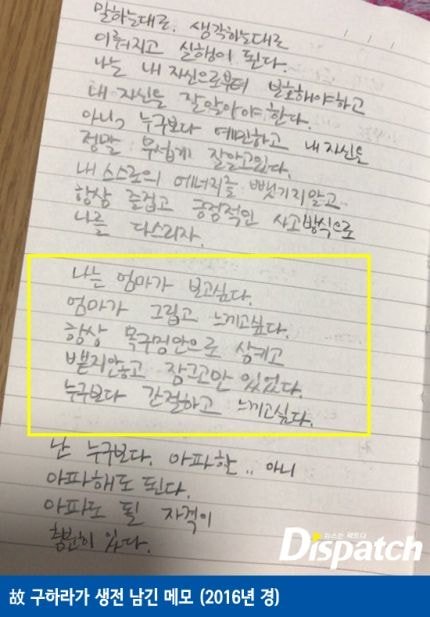 말하는대로. 생각하는대로
이뤄지고 실행이 된다.
나는 내 자신으로부터 보호해야하고
내 자신을 잘알아야한다.
아니, 누구보다 예민하고 내 자신은
정말 무섭게 잘알고있다.
내 스스로의 에너지를 뺏기지않고
항상 즐겁고 긍정적인 사고방식으로
나를 다스리자.
나는 엄마가 보고싶다.
엄마가 그립고 느끼고싶다.
항상 목구멍안으로 삼키고
뱉지않고 잠그고만 있었다.
누구보다 간절하고 느끼고싶다.
난 누구보다. 아파할.. 아니
아파해도 된다.
아파도 될 자격이
충분히 있다.
Dispatch
故 구하라가 생전 남긴 메모 (2016년 경)